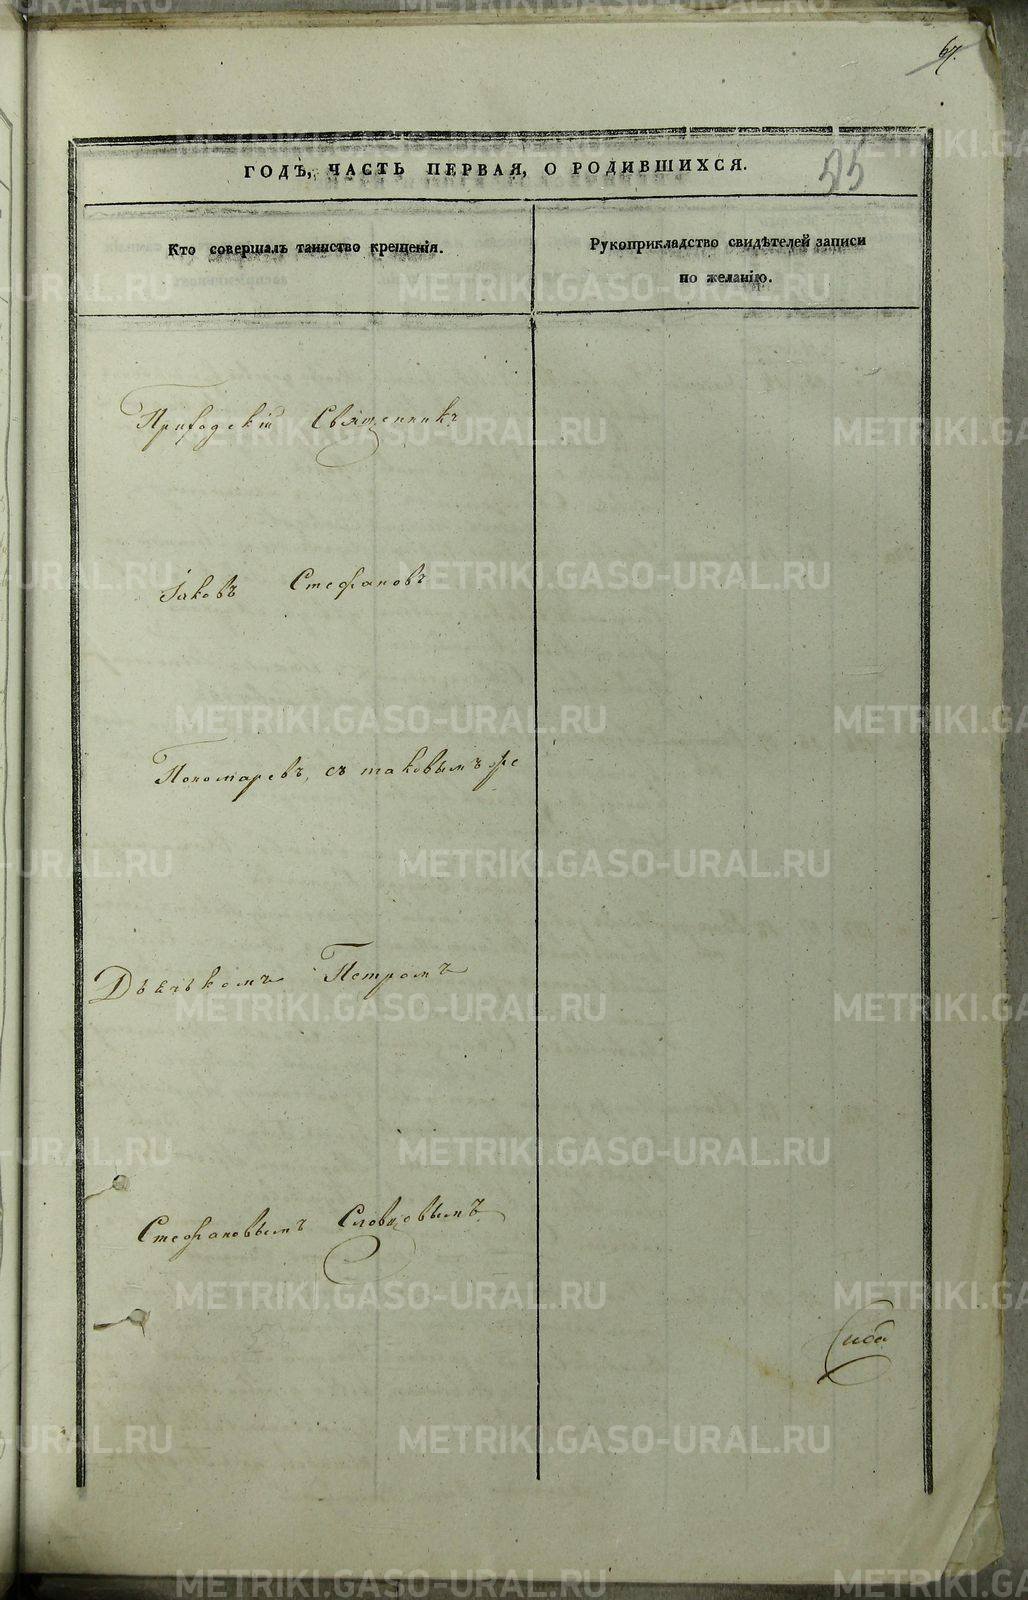 67.
ГОДЪ, ЧАСТЬ ПЕРВАЯ, О РОДИВШИХСЯ.
Кто совершалъ таинство крещенія.
Рукоприкладство свидѣтелей записи
по желанію.
Приходскій Священникъ
Іаковъ Стефановъ
Пономаревъ, съ таковымъ же
Дьячькомъ Петромъ
Стефановымъ Словцовымъ
METRIKI.GASO-URAL.RU